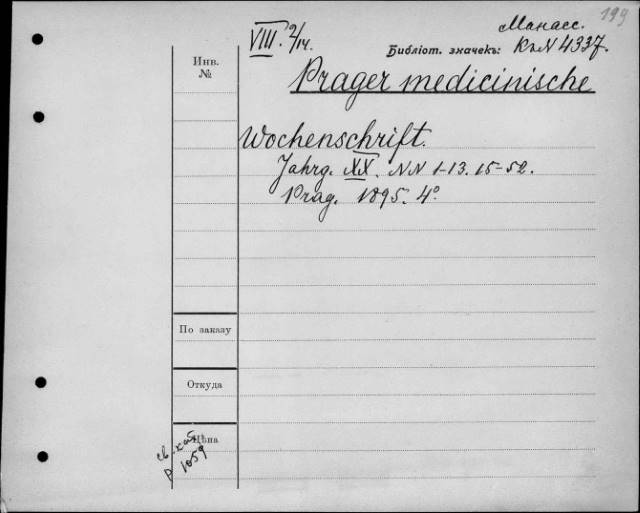 199
Манасс.
VIII. 2/14.
Библiот. значекъ: КъN 4337.
Инв.
№
Prager medicinische
Wochenschrift.
Jahrg. XX. NN 1-13. 15-52.
Prag. 1895. 4º
По заказу
Откуда
Цѣна
1059